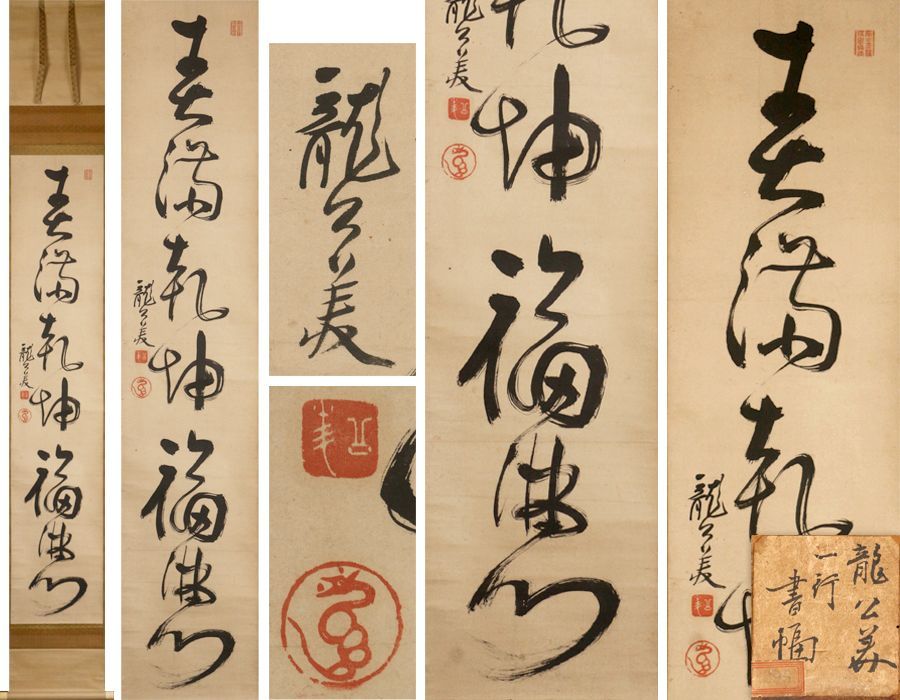 春滿乾坤福滿門
龍公美
龍公美
一行
書幅